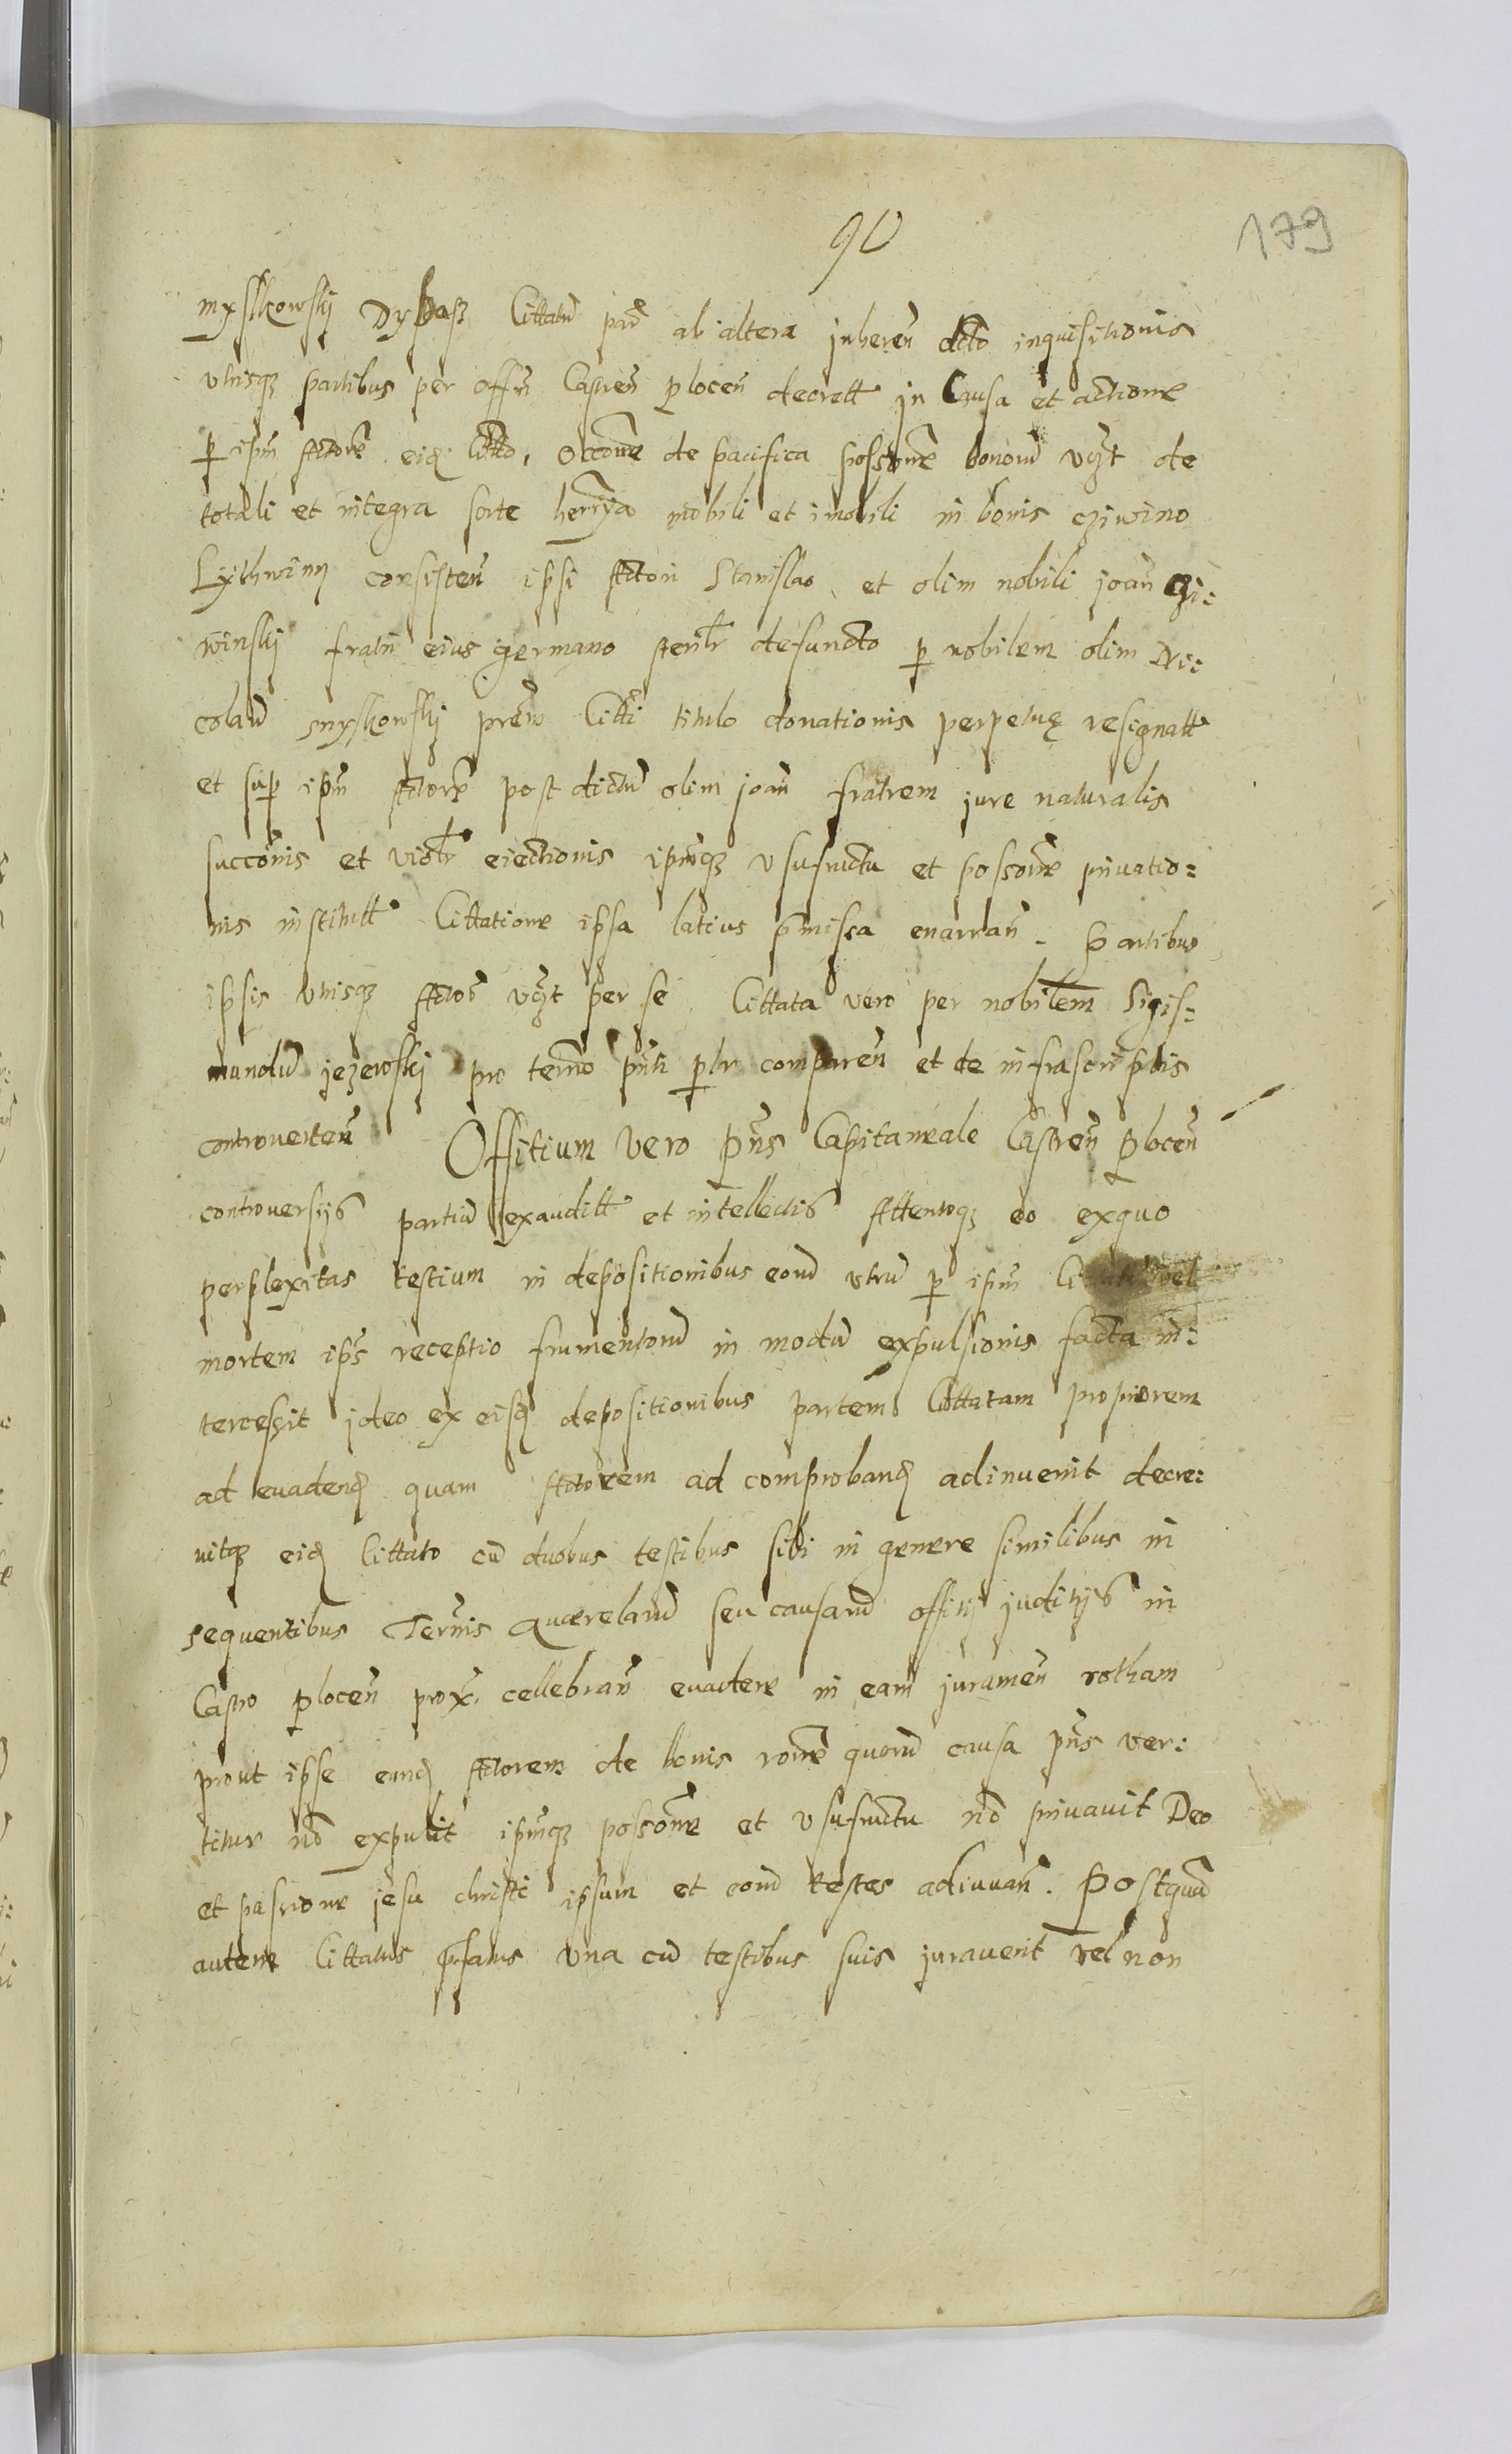 90
179
mysskowskij Dybasz Cittatū par̄ ab altera juheren̄ actō inquisitionis
vtrisq3 partibus per offm̄ Castren̄ plocen̄ decrett in Causa et actione
p ipm̄ Actorē eid. Citto, occōne de pacifica possōne bonorū vczt de
totali et integra sorte herr̄ija mobili et imobili in bonis cziwino
Lythwiny consisten̄ ipsi Actori Stanislao, et olim nobili joan̄ czi:
winskij fratri eius germano sterilr̄ defuncto p nobilem olim Ni:
colaū myskowskij prēm Citti titulo donationis perpetuę resignatt
et sup ipm̄ Actorē post dictū olim joan̄ fratrem jure naturalis
succōnis et violr̄ eiectionis ipm̄q3 vsufructu et possōne priuatio=
nis institutt Cittatione ipsa latius p̄missa enarran̄. Partibus
ipsis vtrisq3 Actor̄ vczt per se Cittata vero per nobilēm Sigis=
mundū jezewskij pro term̄o pn̄ti plr comparen̄ et de infrascriptis
controuerten̄ Offitium vero pn̄s Capitaneale Castren̄ plocen̄
controuersijs partiū exauditt et intellectis Attentoq3 eo exquo
perplexitas testium in depositionibus eorū vtrū p ipm̄ vel
mortem ips̄ receptio frumentorū in modū expulsionis facta in:
tercessit jdeo ex eisd depositionibus partem Cittatam propriorem
ad euadend quam Actorem ad comproband adinuenit decre:
uitq3 eid Cittato cū duobus testibus sibi in genere similibus in
sequentibus Term̄is Quærelarū seu causarū offitij juditijs in
Castro plocen̄ prox. cellebran̄ euadere in eam juramen̄ rotham
prout ipse eund Actorem de bonis rōne quorū causa pn̄s ver:
titur nō expulit ipm̄q3 possōne et vsufructu nō priuauit Deo
et passione jesu christi ipsum et eorū testes adiuuan̄. Postquā
autem Cittatus p̄fatus vna cū testibus suis jurauerit vel non